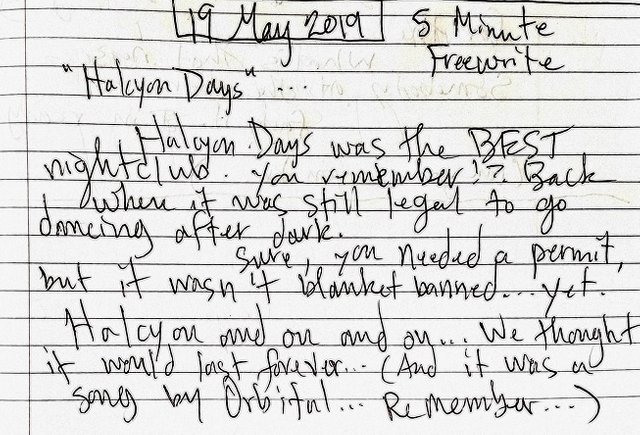 19 May 2019 5 Minute
Freewrite
"Halcyon Days"...
Halcyon Days was the BEST
nightclub. You remember!? Back
when it was still legal to go
dancing after dark.
Sure, you needed a permit,
but it wasn't blanket banned... yet.
Halcyon and on and on... We thought
it would last forever... (And it was a
song by Orbital... Remember...)